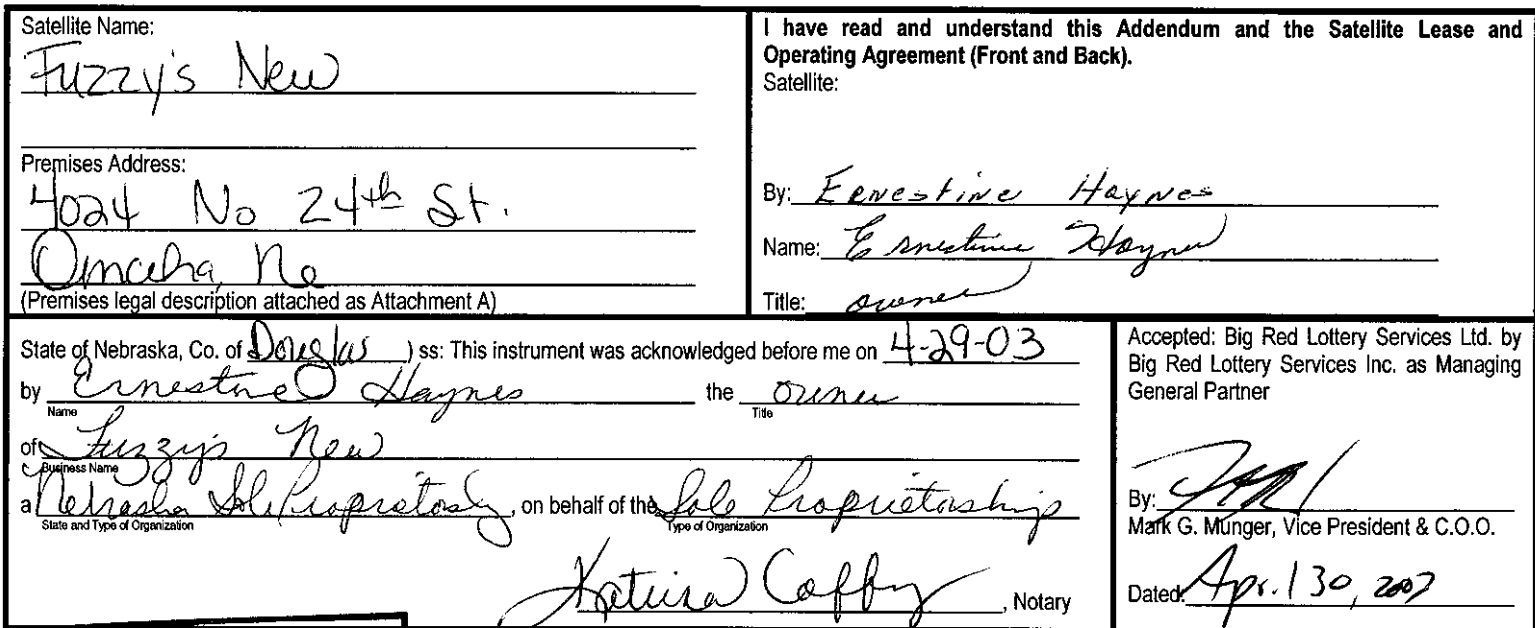 Satellite Name:
Fuzzy's New
Premises Address:
4024 No 24th St.
Omaha, Ne
(Premises legal description attached as Attachment A)
I have read and understand this Addendum and the Satellite Lease and
Operating Agreement (Front and Back).
Satellite:
By: Ernestine Haynes
Name: Ernestine Haynes
Title: owner
State of Nebraska, Co. of Douglas ) ss: This instrument was acknowledged before me on 4-29-03
by Ernestine Haynes the owner
Name Title
of Fuzzy's New
Business Name
a Nebraska Sole Propietorship, on behalf of the Sole Proprietorship
State and Type of Organization Type of Organization
Katrina Coffey, Notary
Accepted: Big Red Lottery Services Ltd. by
Big Red Lottery Services Inc. as Managing
General Partner
By:
Mark G. Munger, Vice President & C.O.O.
Dated: April 30, 2003